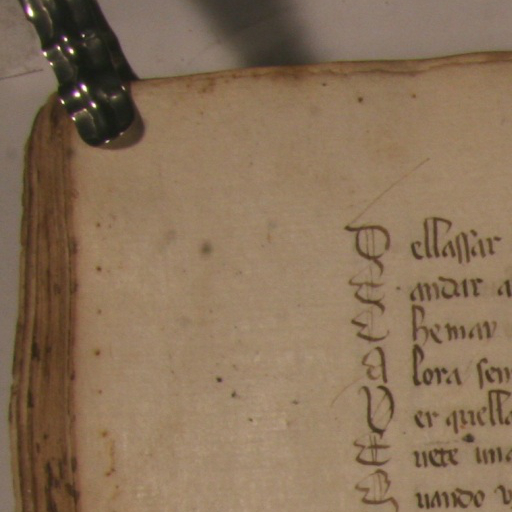 D ellassar
E andar a
C hemar
A lora sem
V er quella
E uete una
Q uando v